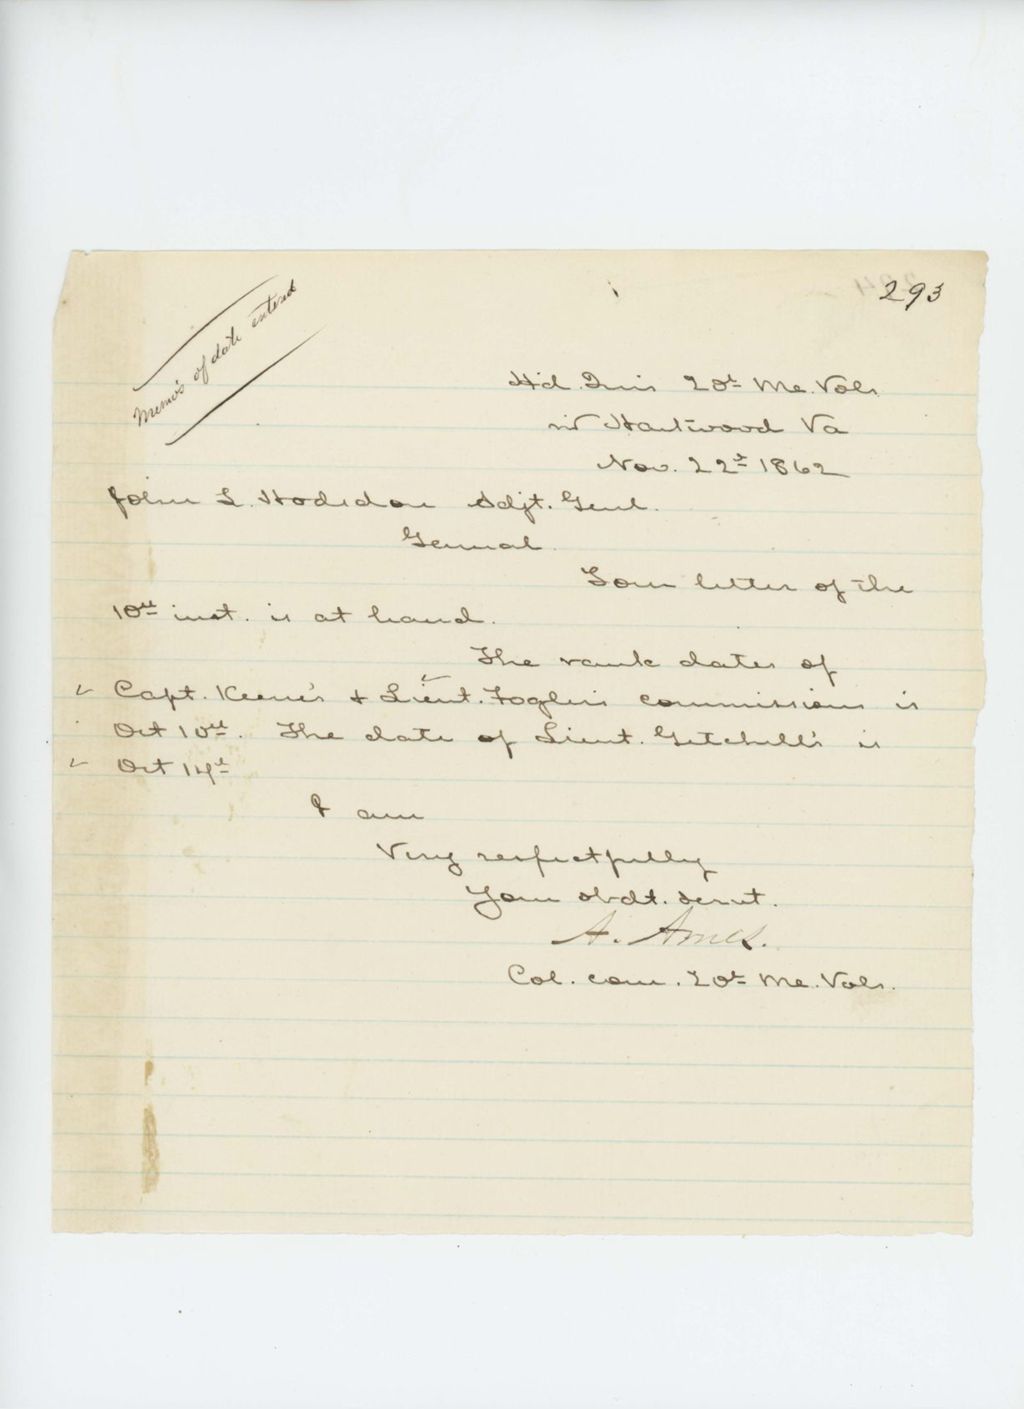 293
Memo's of date entered
Hd. Qrs. 20th Me. Vols.
nr Hartwood Va
Nov. 22d 1862
John L. Hodsdon Adjt. Genl.
General.
Your letter of the
10th inst. is at hand.
The rank dates of
Capt. Keene's & Lieut. Fogler's commissions is
Oct 10th. The date of Lieut. Getchell's is
Oct 14th
I am
Very respectfully
Your obdt. servt.
A. Ames.
Col. com. 20th Me. Vols.